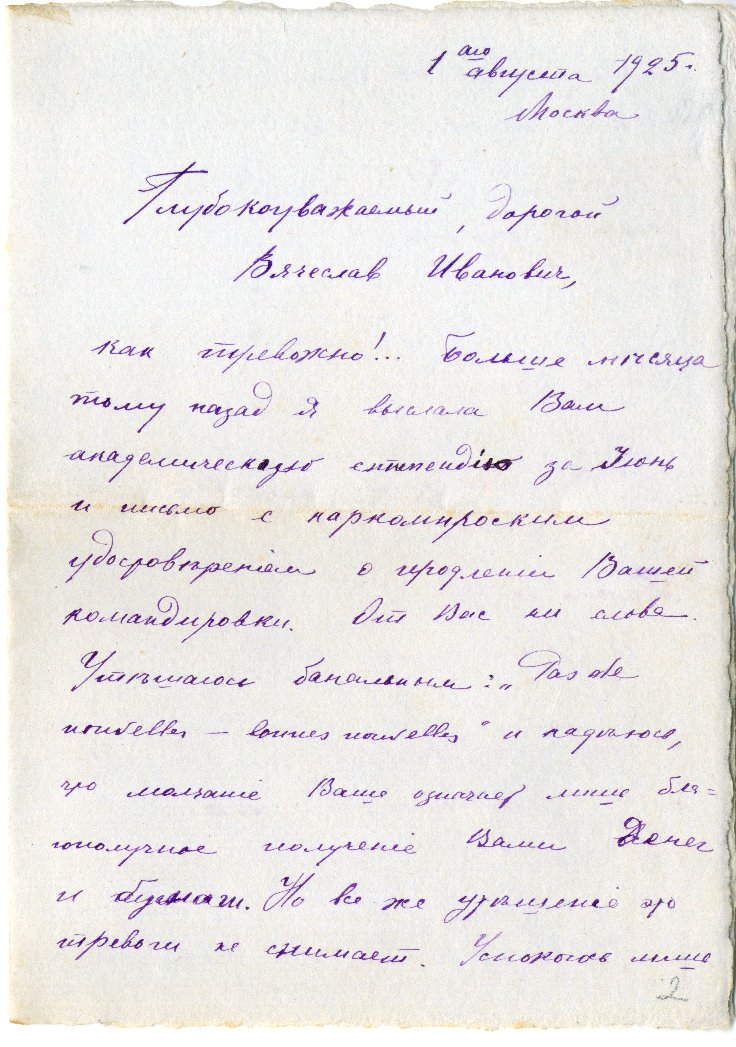 1ого августа 1925 г.
Москва
Глубокоуважаемый, дорогой
Вячеслав Иванович,
как тревожно!.. Больше мѣсяца
тому назад я выслала Вам
академическую стипендію за Июнь
и письмо с наркомпросским
удостовѣреніем о продленіи Вашей
командировки. От Вас ни слова.
Утѣшаюсь банальным: „Pas de
nouvelles – bonnes nouvelles" и надѣюсь,
что молчаніе Ваше означает лишь бла=
гополучное полученіе Вами Денег
и бумаги. Но все же утѣшеніе это
тревоги не снимает. Успокоюсь лишь
2